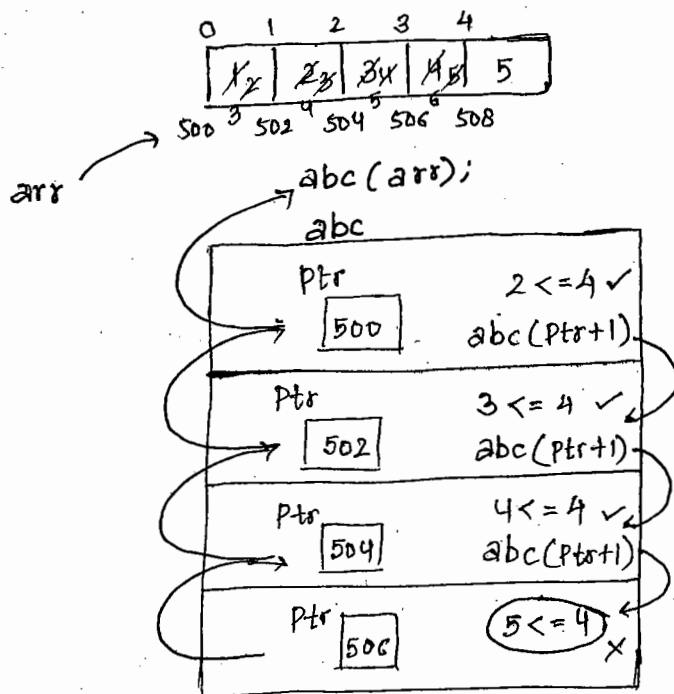 0 1 2 3 4
1 2 2 3 3 4 4 5 5
3 4 5 6
500 502 504 506 508
arr
abc(arr);
abc
Ptr 2 <= 4 ✓
500 abc(Ptr+1)
Ptr 3 <= 4 ✓
502 abc(Ptr+1)
Ptr 4 <= 4 ✓
504 abc(Ptr+1)
Ptr 5 <= 4
506 ×